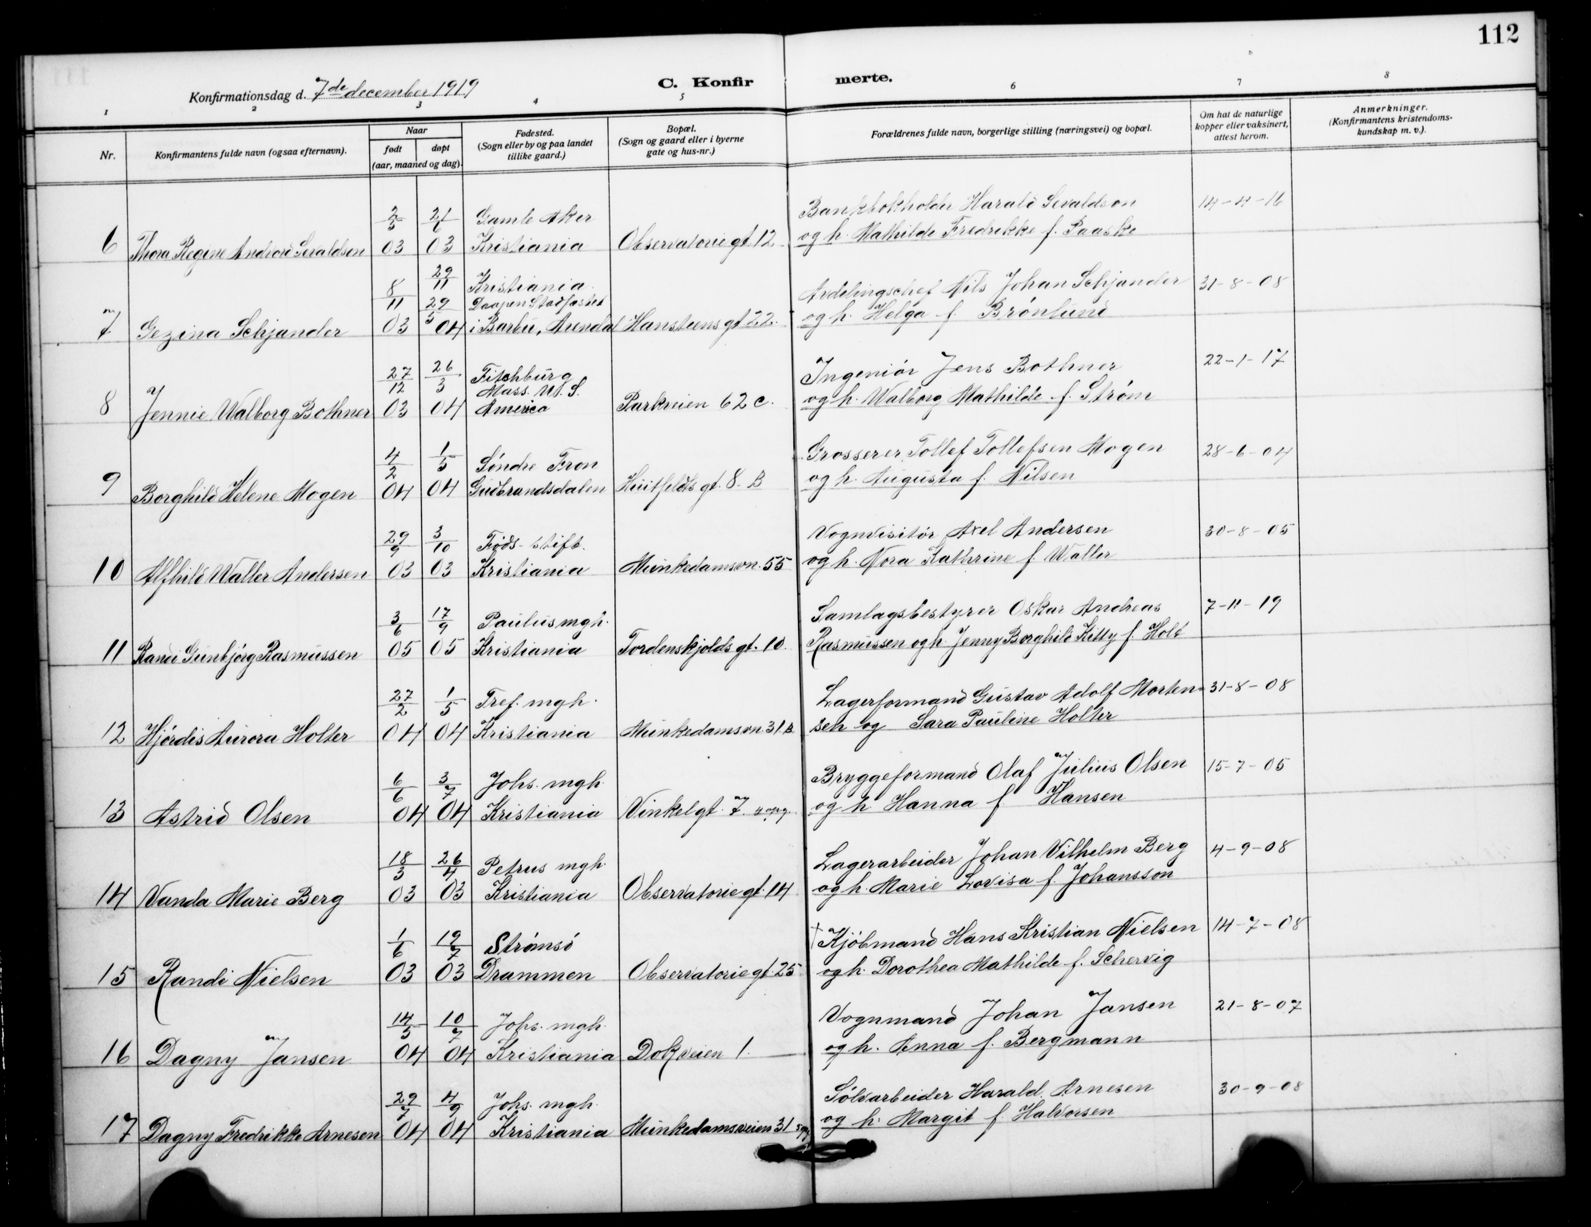 112
Konfirmationsdag d. 7de december 1919
C. Konfir merte.
1 2 3 4 5 6 7 8
Nr.
Konfirmantens fulde navn (ogsaa efternavn).
Naar
født døpt
(aar, maaned og dag).
Fødested.
(Sogn eller by og paa landet
tillike gaard.)
Bopæl.
(Sogn og gaard eller i byerne
gate og hus-nr.)
Forældrenes fulde navn, borgerlige stilling (næringsvei) og bopæl.
Om hat de naturlige
kopper eller vaksinert,
attest herom.
Anmerkninger.
(Konfirmantens kristendoms-
kundskap m. v.).
2/3 21/6 Gamle Aker Bankbokholder Harald Sevaldson 14-4-16
6 Thora Regine Andrea Sevaldsen 03 03 Kristiania Observatoriegt 12 og h. Mathilde Fredrikke f. Paaske
29/11 Kristiania
8/11 29/5 Avdelingschef Nils Johan Schjander 31-8-08
7 Gezina Schjander 03 04 i Barbu, Arendal Hansteensgt 22 og h. Helga f Brønlund
27/12 26/3 Fitchburg Ingeniør Jens Bothner 22-1-17
Mass. U.S.
8 Jennie Walborg Bothner 03 04 America Parkveien 62 c. og h. Walborg Mathilde f. Strøm
4/2 1/5 Søndre Fron Grosserer Tollef Tollefsen Mogen 28-6-04
9 Borghild Helene Mogen 04 04 Gudbrandsdalen Huitfeldts gt. 8. B og h. Augusta f. Nilsen
29/9 3/10 Føds. stift. Vognvisitør Axel Andersen 30-8-05
10 Alfhild Walter Andersen 03 03 Kristiania Munkedamsvn. 55 og h. Nora Kathrine f Walter
3/6 17/9 Paulus mgh. Samlagsbestyrer Oskar Andreas 7-11-19
11 Randi Gunbjørg Rasmussen 05 05 Kristiania Tordenskjolds gt. 10. Rasmussen og h. Jenny Borghild Kitty f. Holt
27/2 1/5 Tref. mgh. Lagerformand Gustav Adolf Morten- 31-8-08
12 Hjørdis Aurora Holter 04 04 Kristiania Munkedamsvn 31 B sen og Sara Pauline Holter
6/6 3/7 Johs. mgh. Bryggeformand Olaf Julius Olsen 15-7-05
13 Astrid Olsen 04 04 Kristiania Vinkelgt. 7 og h Hanna f Hansen
18/3 26/4 Petrus mgh. Lagerarbeider Johan Vilhelm Berg 4-9-08
14 Vanda Marie Berg 03 03 Kristiania Observatoriegt. 14 og h. Marie Lovisa f. Johansson
1/6 19/7 Strømsø † Kjøbmand Hans Kristian Nielsen 14-7-08
15 Randi Nielsen 03 03 Drammen Observatoriegt. 25 og h. Dorothea Mathilde f. Schervig
14/5 10/7 Johs. mgh. Vognmand Johan Jansen 21-8-07
16 Dagny Jansen 04 04 Kristiania Dokveien 1. og h. Anna f. Bergmann
29/7 4/9 Johs. mgh. Sølvarbeider Harald Arnesen 30-9-08
17 Dagny Fredrikke Arnesen 04 04 Kristiania Munkedamsveien 31 og h. Margit f Halvorsen